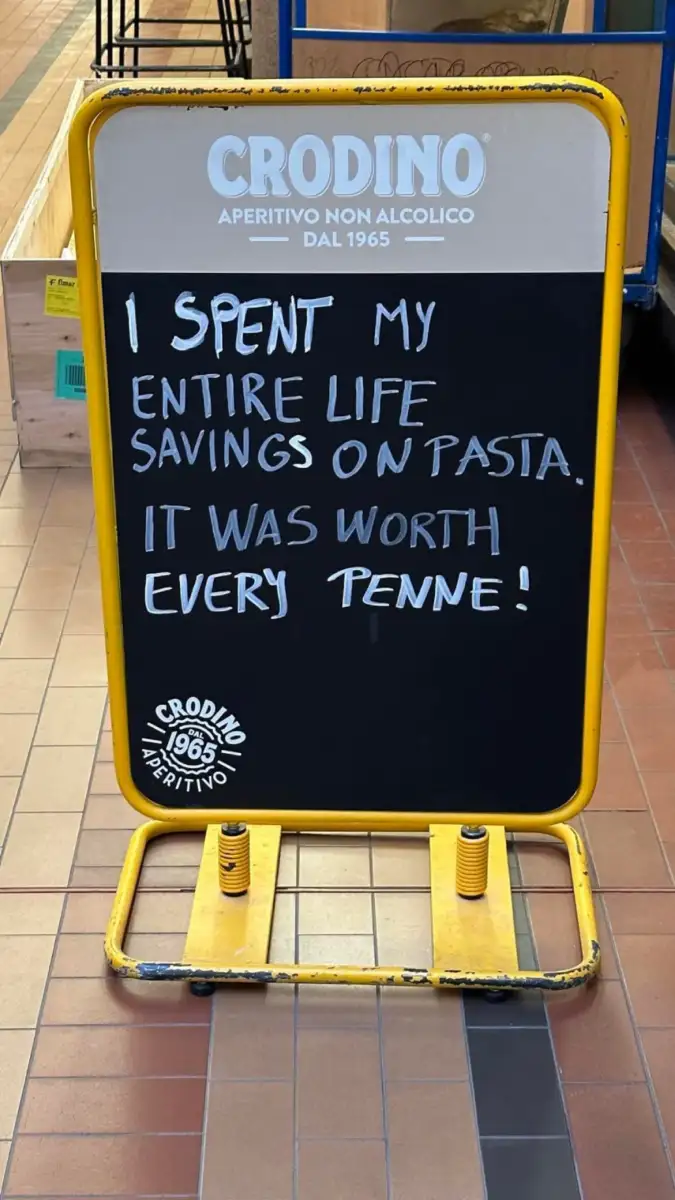 CRODINO
APERITIVO NON ALCOLICO
DAL 1965
I SPENT MY
ENTIRE LIFE
SAVINGS ON PASTA.
IT WAS WORTH
EVERY PENNE!
CRODINO
DAL
1965
APERITIVO